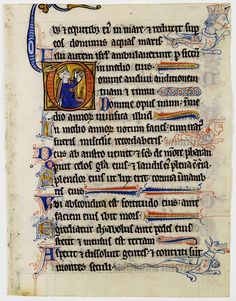 us et equitibus eius in mare et reduxit sup
eos dominus aquas maris
Filii autem isrl ambulaverunt p sicca
in medio eius
Domine audivi auditionem
tuam et timui
Domine opus tuum in me
dio annorum vivifica illud
In medio annorum notum facies cum iratus
fueris misericordie recordaberis
Deus ab austro veniet et scs de monte pharan
Operuit celos gla eius et laudis ei plena e terra
Splendor eius ut lux erit cornua in manib
eius
Ibi abscondita est fortitudo eius ante
faciem eius ibit mors
Egredietur diabolus ante pedes eius
stetit et mensus est terram
Aspexit et dissolvit gentes et contriti sunt
montes seculi